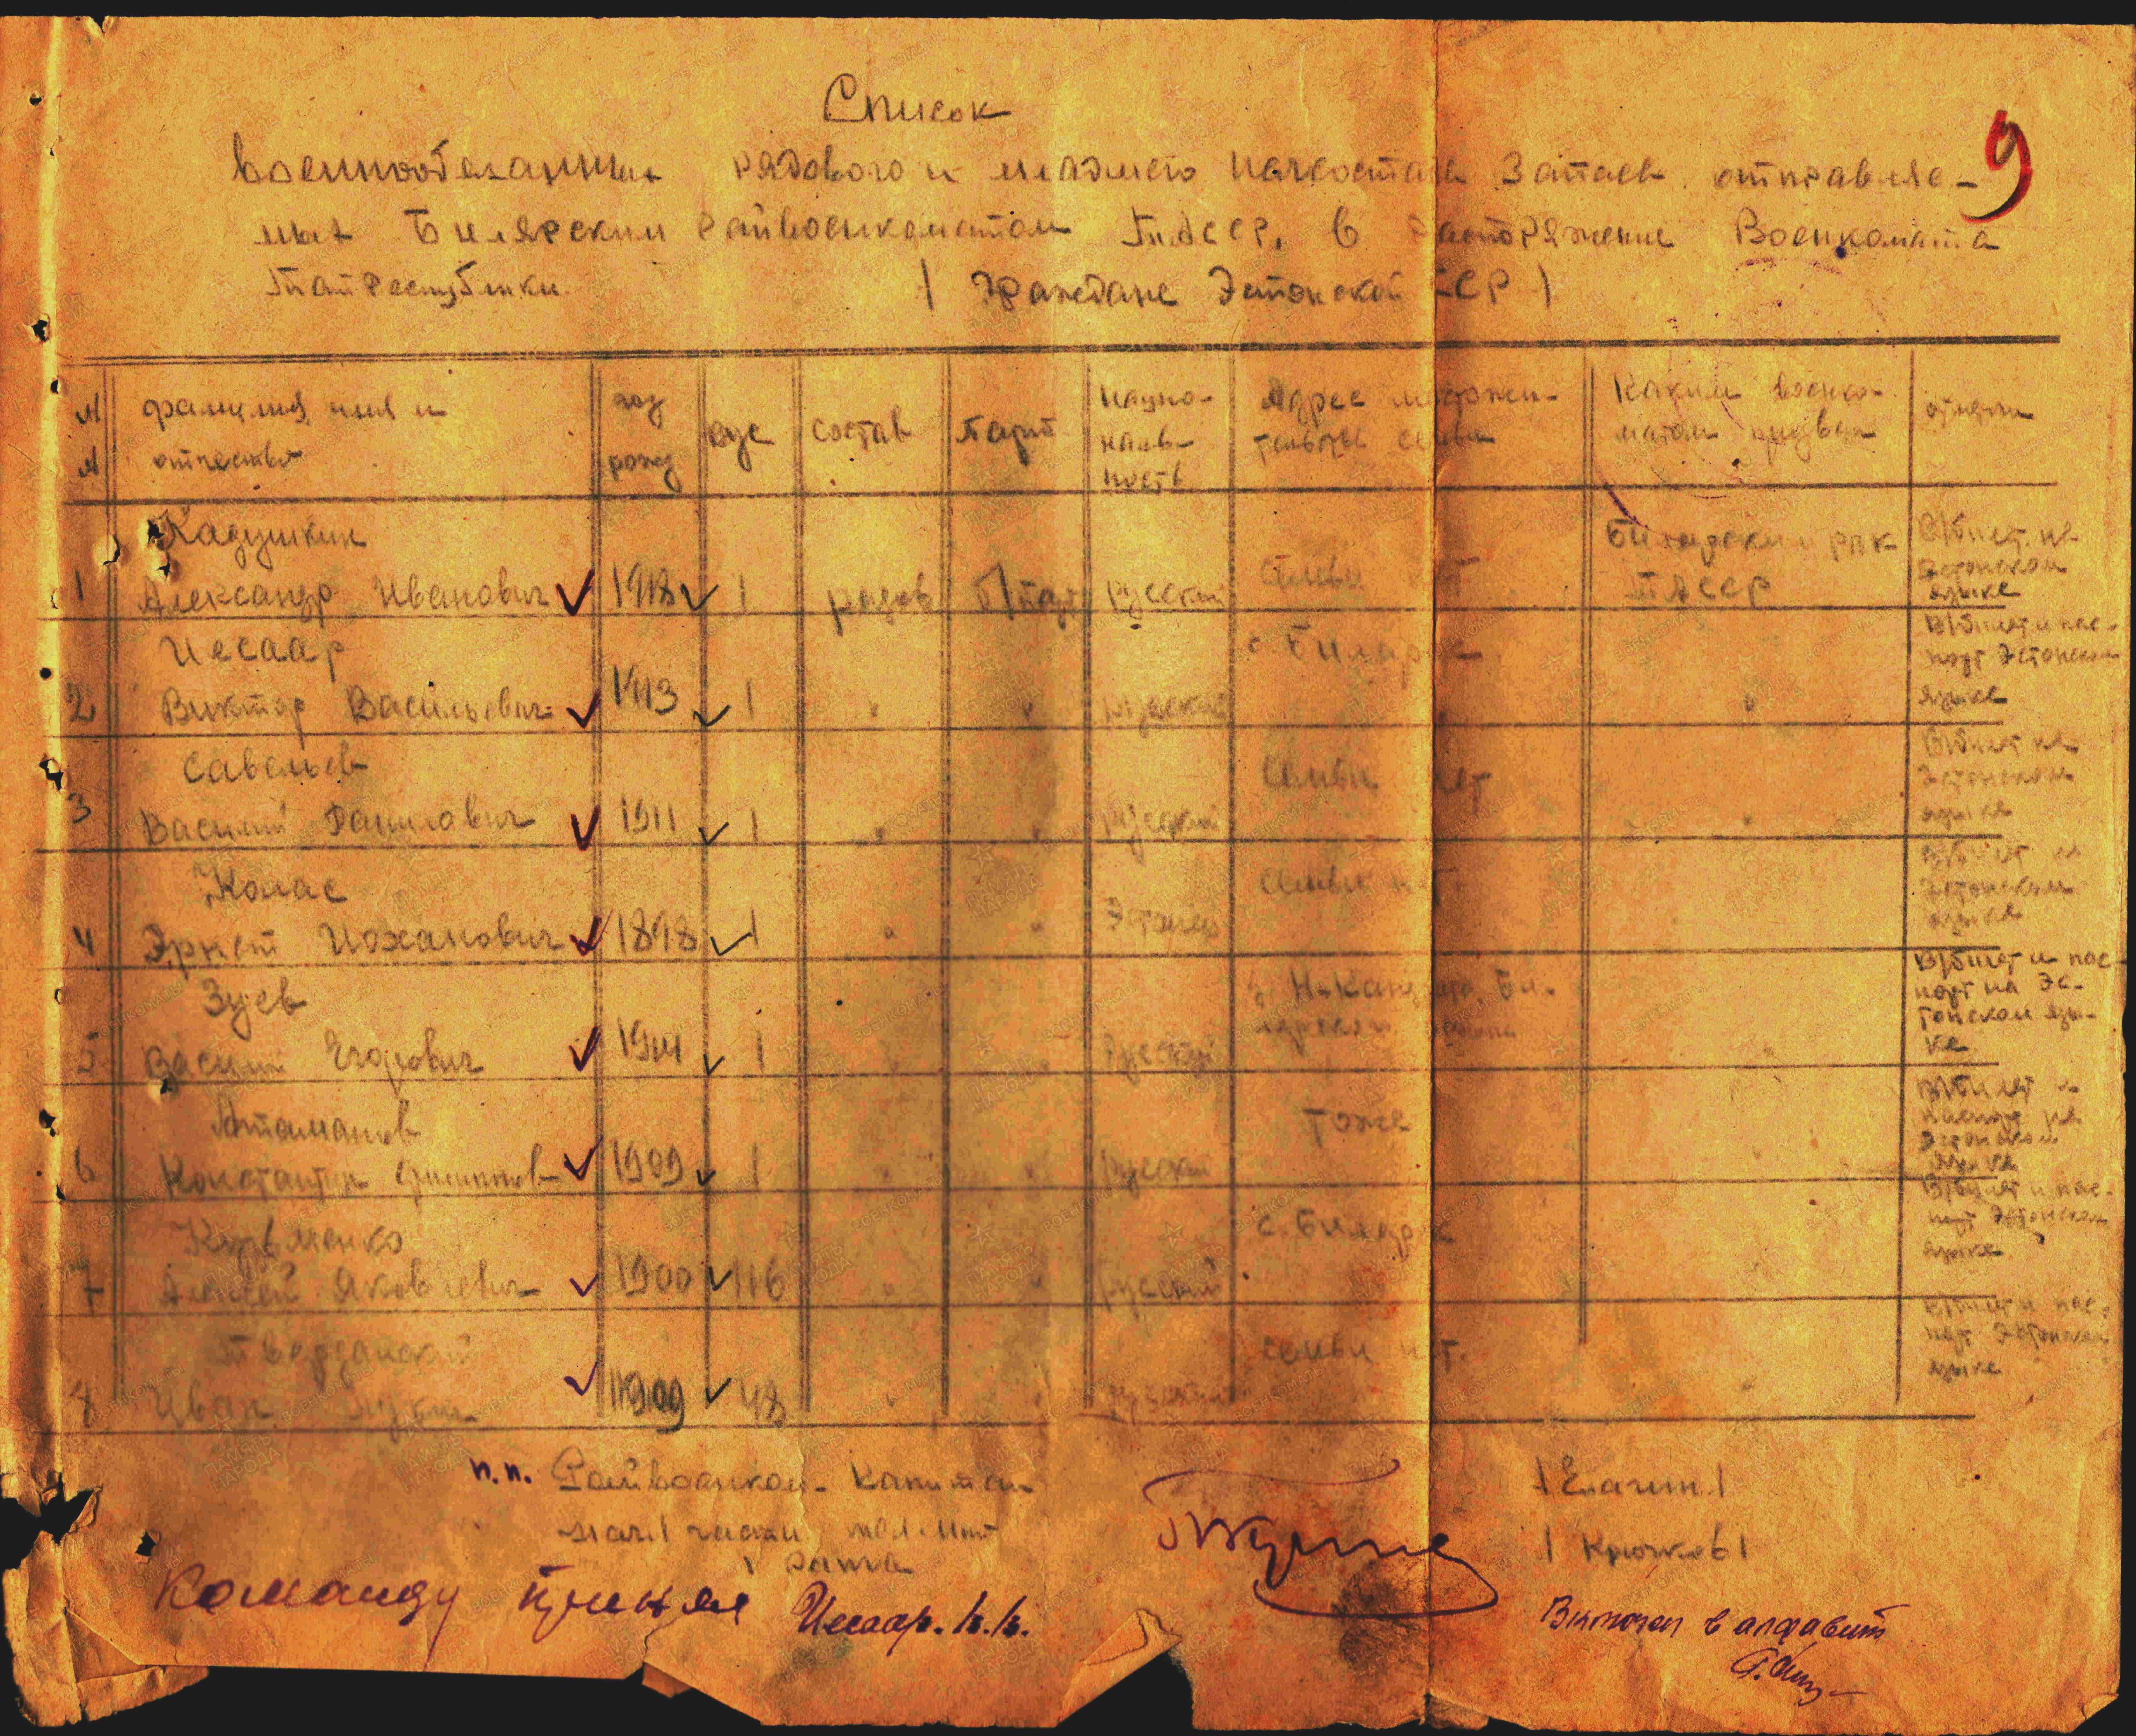 Список
9
военнообязанных рядового и младшего начсостава запаса отправляе-
мых Билярским Райвоенкоматом ТАССР, в распоряжение Военкомата
Татреспублики. / Граждане Эстонской ССР /
№ № фамилия, имя и отчество год рожд вус состав парт национальность Адрес семьи Каким военкоматом призван
Кадушкин
1 Александр Иванович 1918 1 рядов б/парт русский Семьи нет Билярским РВК ТАССР В/билет на Эстонском языке
Иесаар
2 Виктор Васильевич 1913 1 " " русский с. Билярск " В/билет и пас-
порт Эстонском
языке
Савельев
3 Василий Данилович 1911 1 " " русский Семьи нет " В/билет на
Эстонском
языке
Колас
4 Эрнст Иоханович 1898 1 " " Эстонец Семьи нет В/билет на
Эстонском
языке
Зуев
5 Василий Егорович 1914 1 " " Русский Би-
лярском района " В/билет и пас-
порт на Эс-
тонском язы-
ке
Атаманов
6 Константин Филиппов 1909 1 " " русский Тоже В/билет и
паспорт на
Эстонском
языке
Кузьменко
7 Алексей Яковлевич 1900 116 " " Русский с. Билярск В/билет и пас-
порт Эстонском
языке
8 Иван 1909 48 " " русский семьи нет. " В/билет и пас-
порт Эстонском
языке
п.п. Райвоенком - Капитан / Елагин /
нач I части / Крючков /
I ранга
Команду принял Иесаар. В.В.
Включен в алфавит